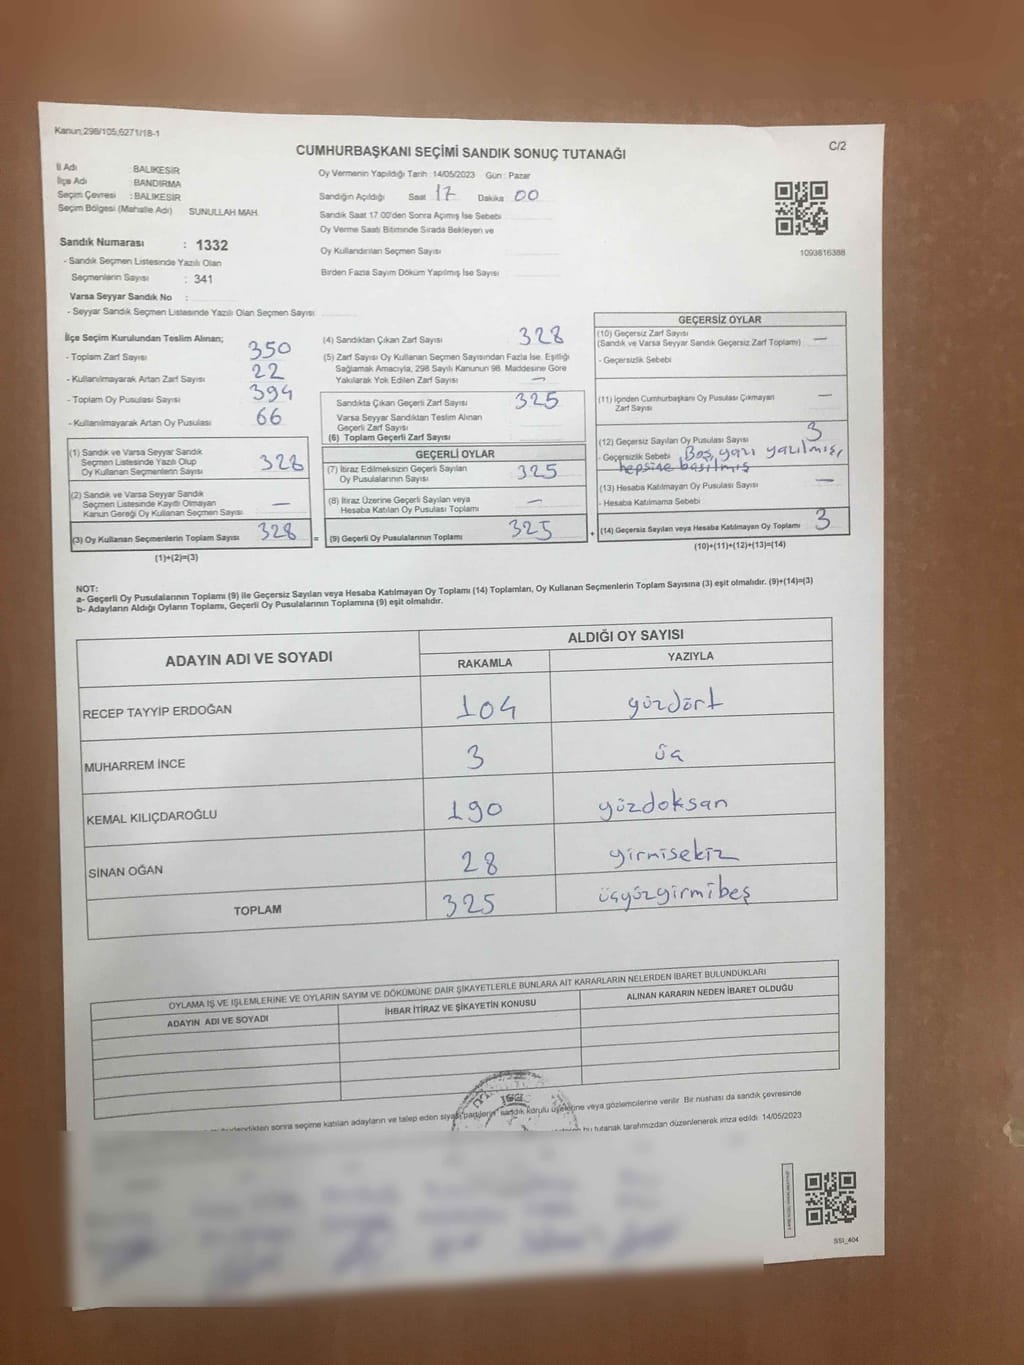 Kanun;298/105,6271/18-1
C/2
CUMHURBAŞKANI SEÇİMİ SANDIK SONUÇ TUTANAĞI
İl Adı : BALIKESİR
İlçe Adı : BANDIRMA
Seçim Çevresi : BALIKESİR
Seçim Bölgesi (Mahalle Adı) SUNULLAH MAH.
Sandık Numarası : 1332
- Sandık Seçmen Listesinde Yazılı Olan
Seçmenlerin Sayısı : 341
Varsa Seyyar Sandık No :
- Seyyar Sandık Seçmen Listesinde Yazılı Olan Seçmen Sayısı
Oy Vermenin Yapıldığı Tarih : 14/05/2023 Gün : Pazar
Sandığın Açıldığı Saat 17 Dakika 00
Sandık Saat 17.00'den Sonra Açımış İse Sebebi
Oy Verme Saati Bitiminde Sırada Bekleyen ve
Oy Kullandırılan Seçmen Sayısı
Birden Fazla Sayım Döküm Yapılmış İse Sayısı
1093816388
İlçe Seçim Kurulundan Teslim Alınan;
- Toplam Zarf Sayısı 350
- Kullanılmayarak Artan Zarf Sayısı 22
- Toplam Oy Pusulası Sayısı 394
- Kullanılmayarak Artan Oy Pusulası 66
(1) Sandık ve Varsa Seyyar Sandık
Seçmen Listesinde Yazılı Olup
Oy Kullanan Seçmenlerin Sayısı 328
(2) Sandık ve Varsa Seyyar Sandık
Seçmen Listesinde Kaydı Olmayan
Kanun Gereği Oy Kullanan Seçmen Sayısı —
(3) Oy Kullanan Seçmenlerin Toplam Sayısı 328 =
(1)+(2)=(3)
(4) Sandıktan Çıkan Zarf Sayısı 328
(5) Zarf Sayısı Oy Kullanan Seçmen Sayısından Fazla İse, Eşitliği
Sağlamak Amacıyla, 298 Sayılı Kanunun 98. Maddesine Göre
Yakılarak Yok Edilen Zarf Sayısı —
Sandıkta Çıkan Geçerli Zarf Sayısı 325
Varsa Seyyar Sandıktan Teslim Alınan
Geçerli Zarf Sayısı
(6) Toplam Geçerli Zarf Sayısı
GEÇERLİ OYLAR
(7) İtiraz Edilmeksizin Geçerli Sayılan
Oy Pusulasının Sayısı 325
(8) İtiraz Üzerine Geçerli Sayılan veya
Hesaba Katılan Oy Pusulası Toplamı —
(9) Geçerli Oy Pusulalarının Toplamı 325 +
GEÇERSİZ OYLAR
(10) Geçersiz Zarf Sayısı
(Sandık ve Varsa Seyyar Sandık Geçersiz Zarf Toplamı) —
- Geçersizlik Sebebi
(11) İçinden Cumhurbaşkanı Oy Pusulası Çıkmayan
Zarf Sayısı —
(12) Geçersiz Sayılan Oy Pusulası Sayısı 3
- Geçersizlik Sebebi Boş, yazı yazılmış,
hepsine basılmış
(13) Hesaba Katılmayan Oy Pusulası Sayısı —
- Hesaba Katılmama Sebebi
(14) Geçersiz Sayılan veya Hesaba Katılmayan Oy Toplamı 3
(10)+(11)+(12)+(13)=(14)
NOT:
a- Geçerli Oy Pusulalarının Toplamı (9) ile Geçersiz Sayılan veya Hesaba Katılmayan Oy Toplamı (14) Toplamları, Oy Kullanan Seçmenlerin Toplam Sayısına (3) eşit olmalıdır. (9)+(14)=(3)
b- Adayların Aldığı Oyların Toplamı, Geçerli Oy Pusulalarının Toplamına (9) eşit olmalıdır.
ADAYIN ADI VE SOYADI
ALDIĞI OY SAYISI
RAKAMLA YAZIYLA
RECEP TAYYİP ERDOĞAN 104 yüzdört
MUHARREM İNCE 3 üç
KEMAL KILIÇDAROĞLU 190 yüzdoksan
SİNAN OĞAN 28 yirmisekiz
TOPLAM 325 üçyüzyirmibeş
OYLAMA İŞ VE İŞLEMLERİNE VE OYLARIN SAYIM VE DÖKÜMÜNE DAİR ŞİKAYETLERLE BUNLARA AİT KARARLARIN NELERDEN İBARET BULUNDUKLARI
ADAYIN ADI VE SOYADI İHBAR İTİRAZ VE ŞİKAYETİN KONUSU ALINAN KARARIN NEDEN İBARET OLDUĞU
sonra seçime katılan adayların ve talep eden siyasi partilerin sandık kurulu üyelerine veya gözlemcilerine verilir. Bir nüshası da sandık çevresinde
bu tutanak tarafımızdan düzenlenerek imza edildi. 14/05/2023
SSI_404